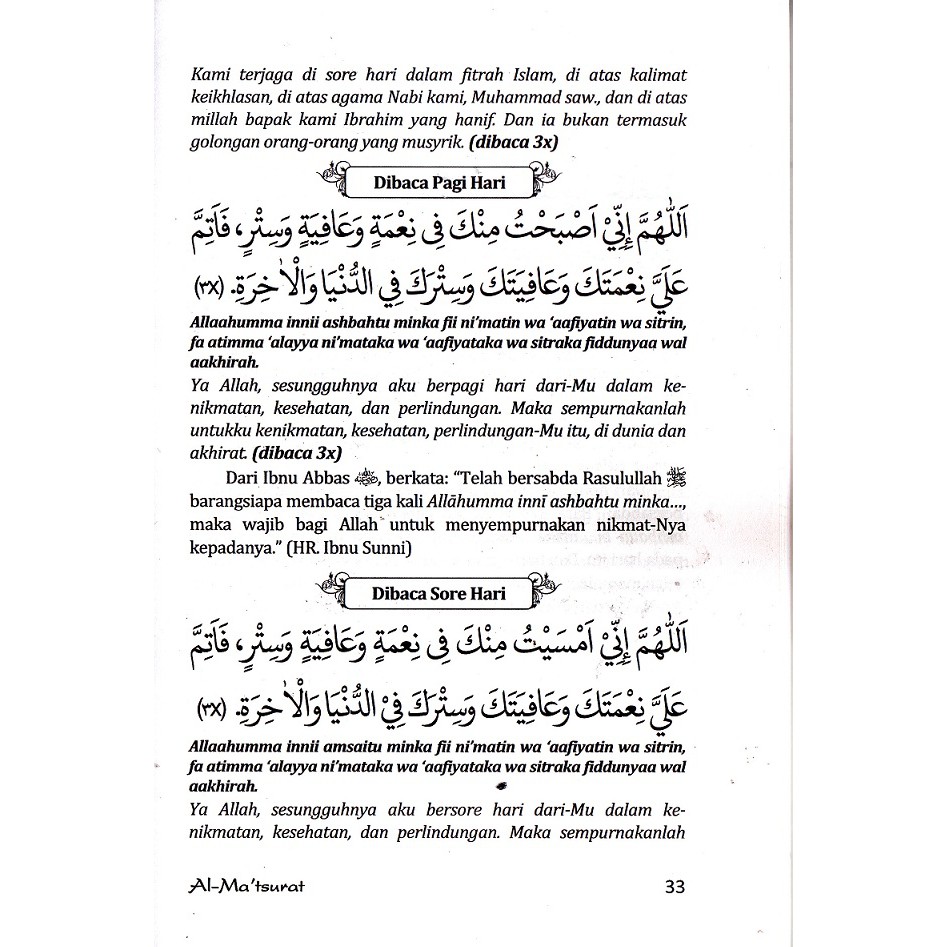 Kami terjaga di sore hari dalam fitrah Islam, di atas kalimat
keikhlasan, di atas agama Nabi kami, Muhammad saw., dan di atas
millah bapak kami Ibrahim yang hanif. Dan ia bukan termasuk
golongan orang-orang yang musyrik. (dibaca 3x)
Dibaca Pagi Hari
اَللّٰهُمَّ إِنِّيْ اَصْبَحْتُ مِنْكَ فِى نِعْمَةٍ وَعَافِيَةٍ وَسِتْرٍ، فَاَتِمَّ
عَلَيَّ نِعْمَتَكَ وَعَافِيَتَكَ وَسِتْرَكَ فِي الدُّنْيَا وَالْاٰخِرَةِ. (٣X)
Allaahumma innii ashbahtu minka fii ni’matin wa ‘aafiyatin wa sitrin,
fa atimma ‘alayya ni’mataka wa ‘aafiyataka wa sitraka fiddunyaa wal
aakhirah.
Ya Allah, sesungguhnya aku berpagi hari dari-Mu dalam ke-
nikmatan, kesehatan, dan perlindungan. Maka sempurnakanlah
untukku kenikmatan, kesehatan, perlindungan-Mu itu, di dunia dan
akhirat. (dibaca 3x)
Dari Ibnu Abbas, berkata: “Telah bersabda Rasulullah ﷺ
barangsiapa membaca tiga kali Allāhumma innī ashbahtu minka...,
maka wajib bagi Allah untuk menyempurnakan nikmat-Nya
kepadanya.” (HR. Ibnu Sunni)
Dibaca Sore Hari
اَللّٰهُمَّ إِنِّيْ اَمْسَيْتُ مِنْكَ فِى نِعْمَةٍ وَعَافِيَةٍ وَسِتْرٍ، فَاَتِمَّ
عَلَيَّ نِعْمَتَكَ وَعَافِيَتَكَ وَسِتْرَكَ فِيْ الدُّنْيَا وَالْاٰخِرَةِ. (٣X)
Allaahumma innii amsaitu minka fii ni’matin wa ‘aafiyatin wa sitrin,
fa atimma ‘alayya ni’mataka wa ‘aafiyataka wa sitraka fiddunyaa wal
aakhirah.
Ya Allah, sesungguhnya aku bersore hari dari-Mu dalam ke-
nikmatan, kesehatan, dan perlindungan. Maka sempurnakanlah
Al-Ma’tsurat 33